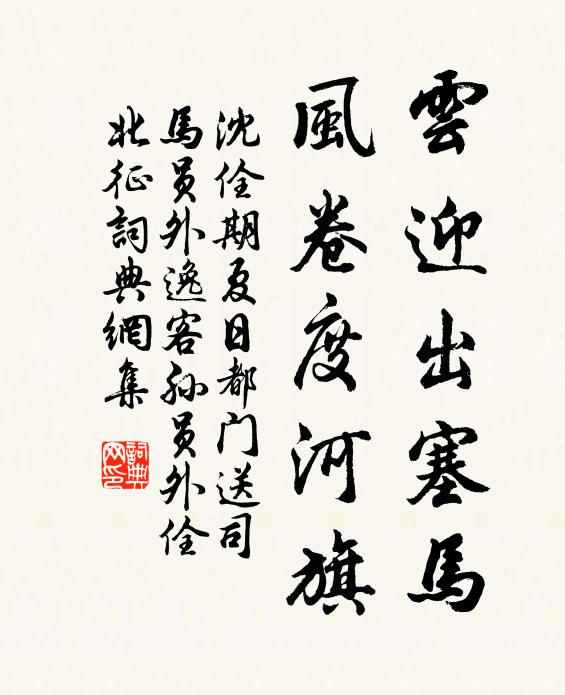 雲迎出塞馬
風卷度河旗
沈佺期夏日都门送司
馬员外逸客孙员外佺
北征詞典網集
詞典网印